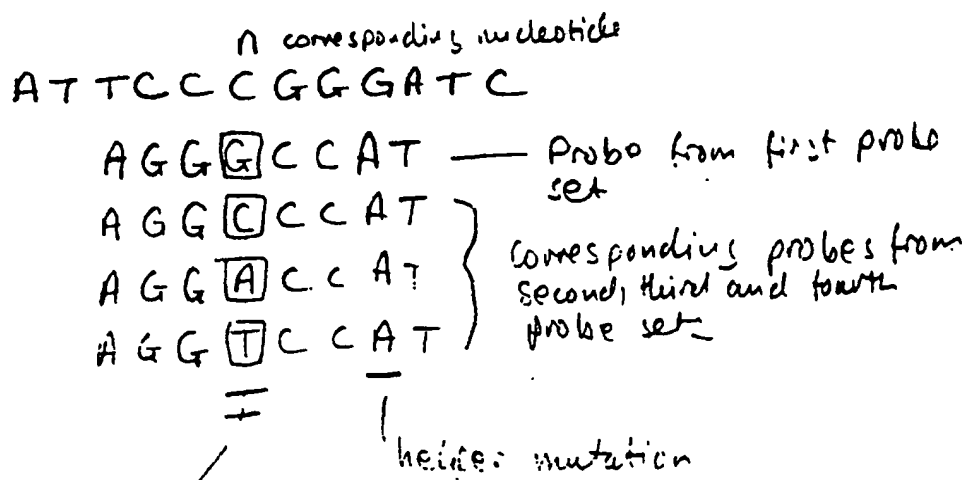 n corresponding nucleotide
A T T C C C G G G A T C
A G G G C C A T — Probe from first probe set
A G G C C C A T
A G G A C C A T
A G G T C C A T
Corresponding probes from
second, third and fourth
probe set
mutation